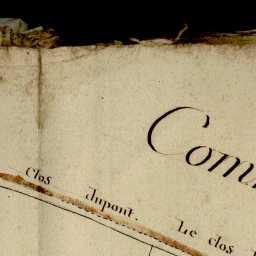 Com
Clos dupont.
Le clos